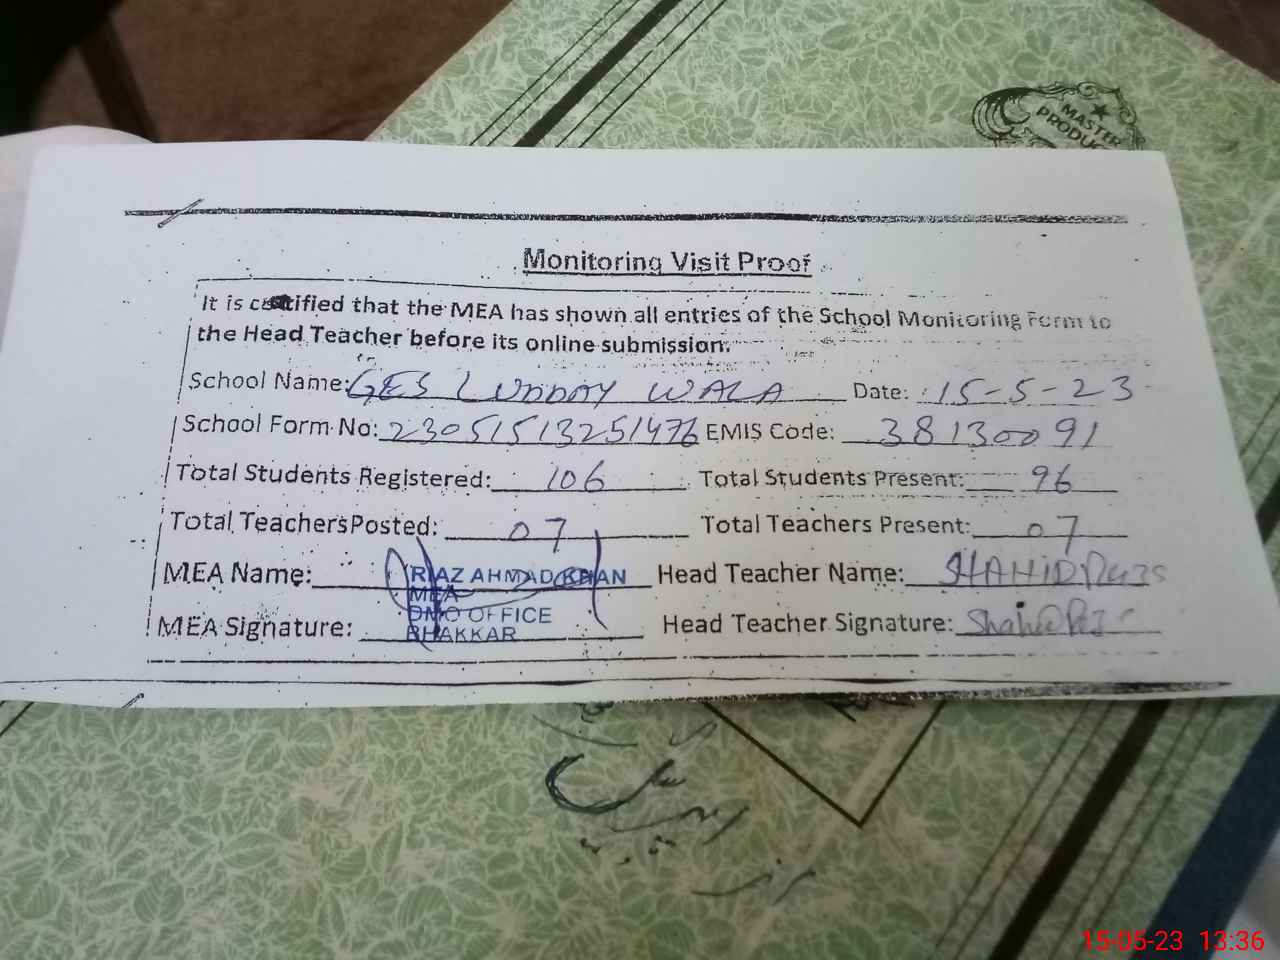 MASTER
PRODUC
Monitoring Visit Proof
It is certified that the MEA has shown all entries of the School Monitoring Form to
the Head Teacher before its online submission.
School Name: GES LUDDAY WALA Date: 15-5-23
School Form No: 23051513251476 EMIS Code: 38130091
Total Students Registered: 106 Total Students Present: 96
Total Teachers Posted: 07 Total Teachers Present: 07
MEA Name: RIAZ AHMAD KHAN Head Teacher Name: SHAHID
MEA
DMO OFFICE
MEA Signature: BHAKKAR Head Teacher Signature: Shahid
15-05-23 13:36